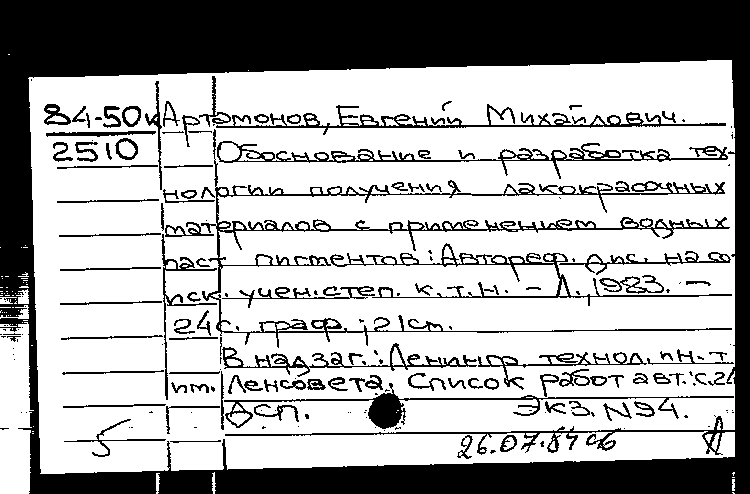 84-50к Артамонов, Евгений Михайлович.
2510 Обоснование и разработка тех-
нологии получения лакокрасочных
материалов с применением водных
паст пигментов : Автореф. дис. на со-
иск. учен. степ. к. т. н. - Л., 1983. -
24 с., граф. ; 21 см.
В надзаг. : Ленингр. технол. ин-т
им. Ленсовета. Список работ авт.: с.
ДСП. ЭКЗ. N94.
5 26.07.84